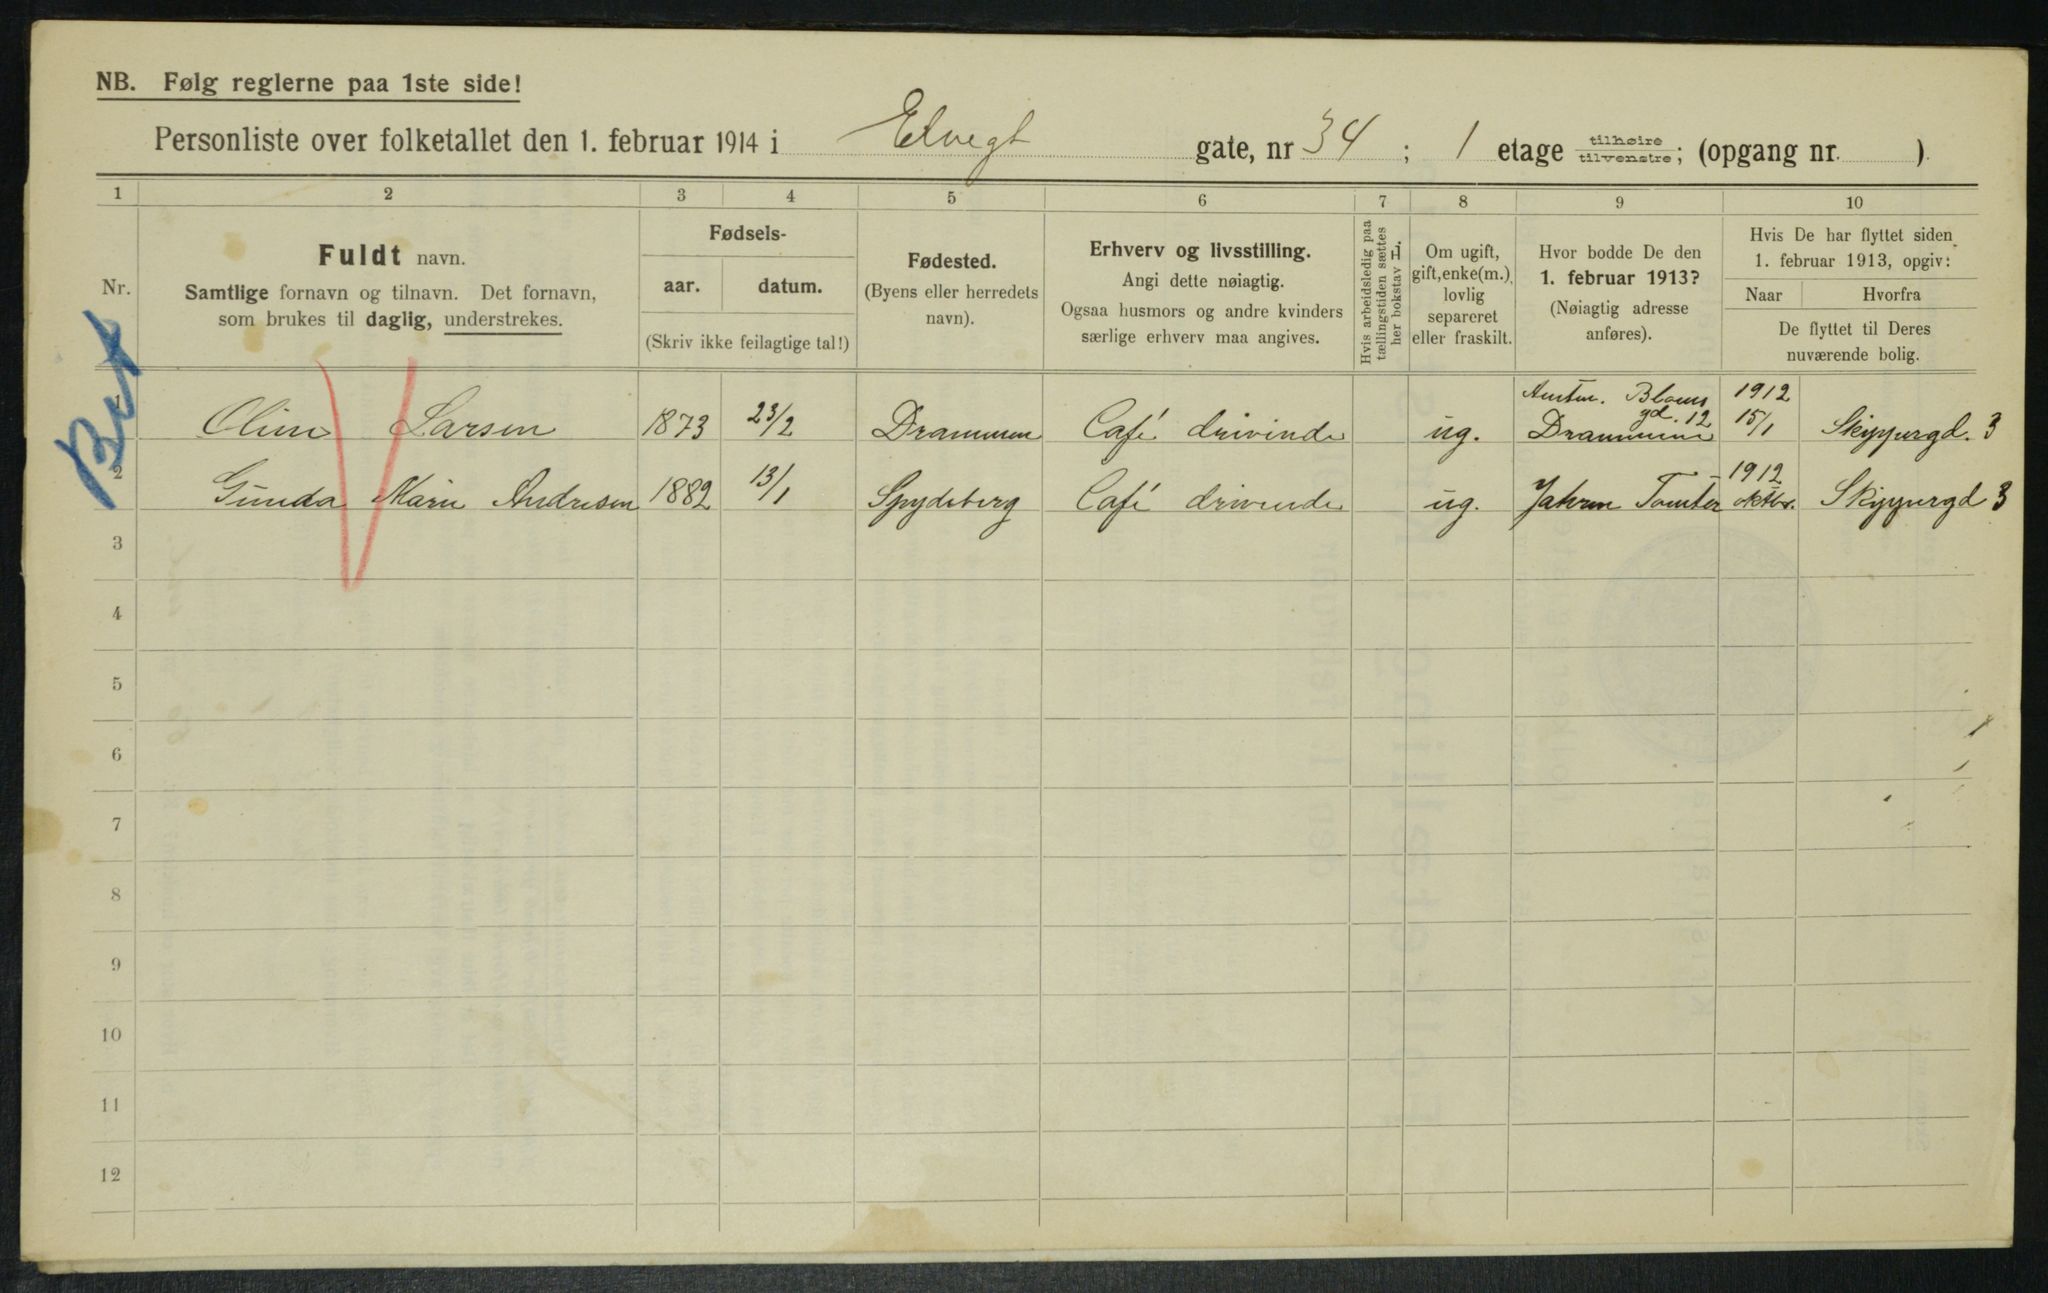 NB. Følg reglerne paa 1ste side!
Personliste over folketallet den 1. februar 1914 i Elvegt gate, nr 34; 1 etage tilhøire/tilvenstre; (opgang nr. )
1 2 3 4 5 6 7 8 9 10
Nr.
Fuldt navn.
Samtlige fornavn og tilnavn. Det fornavn,
som brukes til daglig, understrekes.
Fødsels-
aar. datum.
(Skriv ikke feilagtige tal!)
Fødested.
(Byens eller herredets
navn).
Erhverv og livsstilling.
Angi dette nøiagtig.
Ogsaa husmors og andre kvinders
særlige erhverv maa angives.
Hvis arbeidsledig paa
tællingstiden sættes
her bokstav i
Om ugift,
gift, enke(m.),
lovlig
separeret
eller fraskilt.
Hvor bodde De den
1. februar 1913?
(Nøiagtig adresse
anføres).
Hvis De har flyttet siden
1. februar 1913, opgiv:
Naar Hvorfra
De flyttet til Deres
nuværende bolig.
1 Oline Larsen 1873 23/2 Drammen Café drivinde ug. Bloms gd. 12 Drammen 1912 15/1 Skippergd. 3
2 Gunda Marie Andresen 1882 13/1 Spydeberg Café drivende ug. Tomter 1912 oktbr. Skippergd 3
3
4
5
6
7
8
9
10
11
12